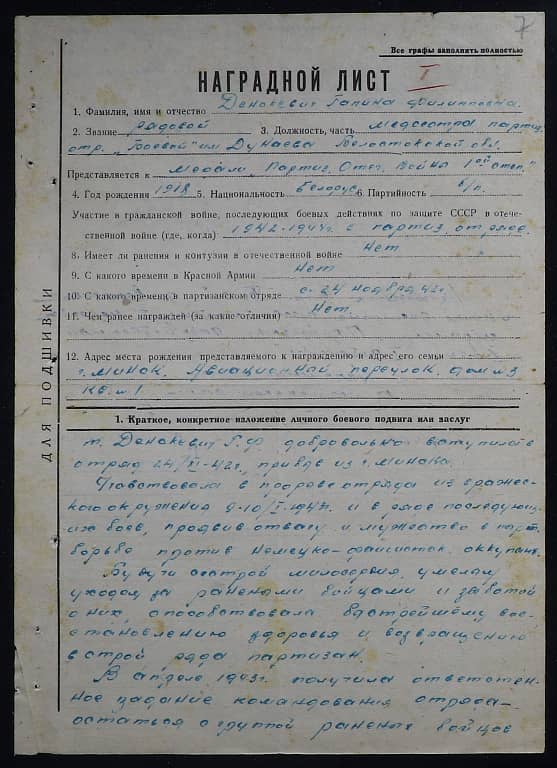 7
Все графы заполнить полностью
НАГРАДНОЙ ЛИСТ I
1. Фамилия, имя и отчество Денокевич Галина Филипповна.
2. Звание рядовой 3. Должность, часть медсестра партиз.
отр. „Боевой" им Дунаева Белостокской обл.
Представляется к медали „Партиз. Отеч. Война 1ой степ."
4. Год рождения 1918 5. Национальность белорус 6. Партийность б/п.
Участие в гражданской войне, последующих боевых действиях по защите СССР в отече-
ственной войне (где, когда) 1942-1944г. с партиз. отряде.
8. Имеет ли ранения и контузии в отечественной войне Нет
9. С какого времени в Красной Армии Нет
10. С какого времени в партизанском отряде с 24 ноября 42г.
11. Чем ранее награжден (за какие отличия) Нет
12. Адрес места рождения представляемого к награждению и адрес его семьи
г. Минск, Авиационный переулок, дом №3
кв. №1
ДЛЯ ПОДШИВКИ
1. Краткое, конкретное изложение личного боевого подвига или заслуг
т. Денокевич Г.Ф. добровольно вступила в
отряд 24/XI-42г., придя из г. Минска.
Участвовала в прорыве отряда из вражес-
кого окружения 9-10/I.1944г. и в ряде последующ-
их боев, проявив отвагу и мужество в парт.
борьбе против немецко-фашистск. оккупант.
Будучи сестрой милосердия, умелым
уходом за ранеными бойцами и заботой
о них, способствовала быстрейшему вос-
становлению здоровья и возвращению
в строй ряда партизан.
В апреле 1943г. получила ответствен-
ное задание командования отряда-
остаться с группой раненых бойцов